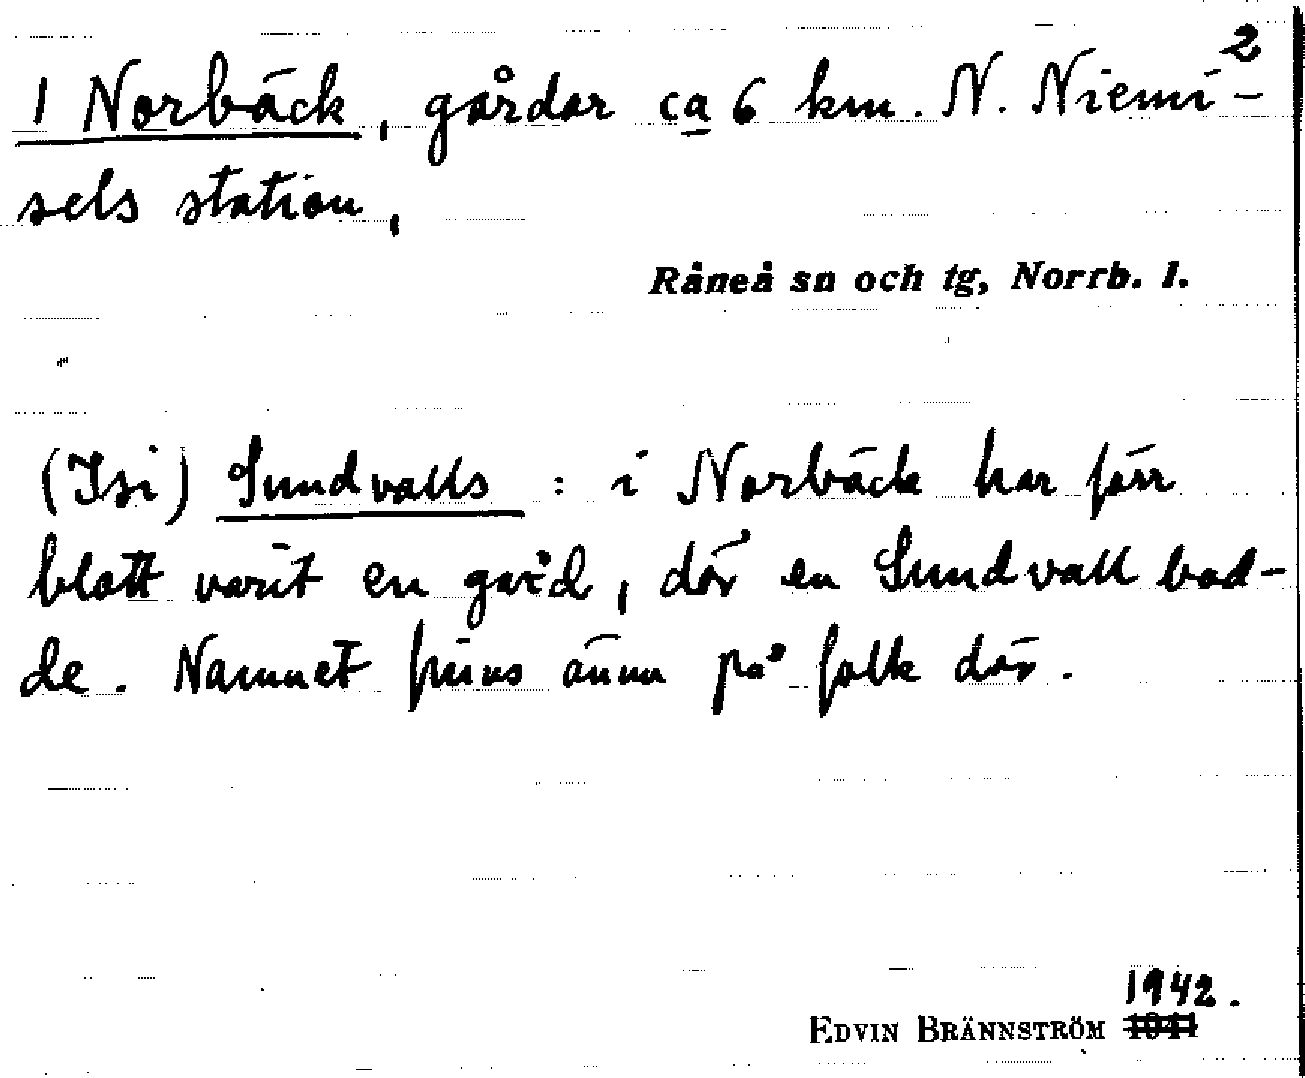 2
1 Norbäck, gårdar ca 6 km. N. Niemi-
sels station,
Råneå sn och tg, Norrb. l.
(Isi) Sundvalls : i Norbäck har förr
blott varit en gård, där en Sundvall bod-
de. Namnet finns ännu på folk där.
1942.
EDVIN BRÄNNSTRÖM 1941